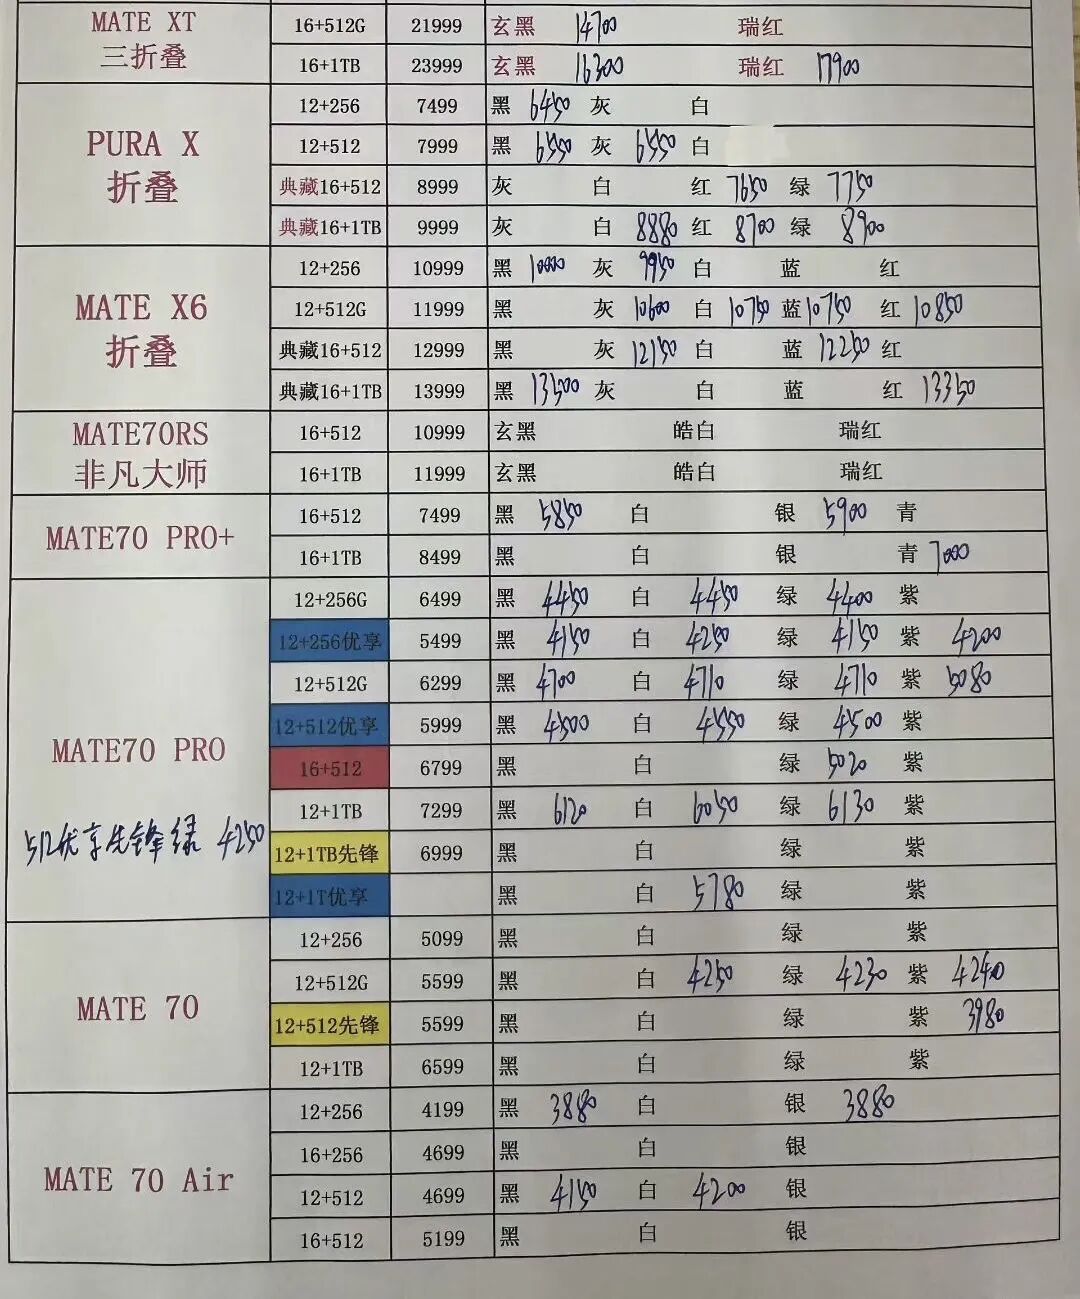 MATE XT
三折叠
16+512G 21999 玄黑 14700 瑞红
16+1TB 23999 玄黑 16300 瑞红 17900
PURA X
折叠
12+256 7499 黑 6450 灰 白
12+512 7999 黑 6550 灰 6550 白
典藏16+512 8999 灰 白 红 7650 绿 7750
典藏16+1TB 9999 灰 白 8880 红 8700 绿 8900
MATE X6
折叠
12+256 10999 黑 10000 灰 9950 白 蓝 红
12+512G 11999 黑 灰 10600 白 10750 蓝 10750 红 10850
典藏16+512 12999 黑 灰 12150 白 蓝 12250 红
典藏16+1TB 13999 黑 13500 灰 白 蓝 红 13350
MATE70RS
非凡大师
16+512 10999 玄黑 皓白 瑞红
16+1TB 11999 玄黑 皓白 瑞红
MATE70 PRO+
16+512 7499 黑 5850 白 银 5900 青
16+1TB 8499 黑 白 银 青 7000
MATE70 PRO
512优享先锋绿 4250
12+256G 6499 黑 4450 白 4450 绿 4400 紫
12+256优享 5499 黑 4150 白 4250 绿 4150 紫 4200
12+512G 6299 黑 4700 白 4710 绿 4710 紫 5080
12+512优享 5999 黑 4500 白 4550 绿 4500 紫
16+512 6799 黑 白 绿 5020 紫
12+1TB 7299 黑 6120 白 6050 绿 6130 紫
12+1TB先锋 6999 黑 白 绿 紫
12+1T优享 黑 白 5780 绿 紫
MATE 70
12+256 5099 黑 白 绿 紫
12+512G 5599 黑 白 4250 绿 4230 紫 4240
12+512先锋 5599 黑 白 绿 紫 3980
12+1TB 6599 黑 白 绿 紫
MATE 70 Air
12+256 4199 黑 3880 白 银 3880
16+256 4699 黑 白 银
12+512 4699 黑 4150 白 4200 银
16+512 5199 黑 白 银